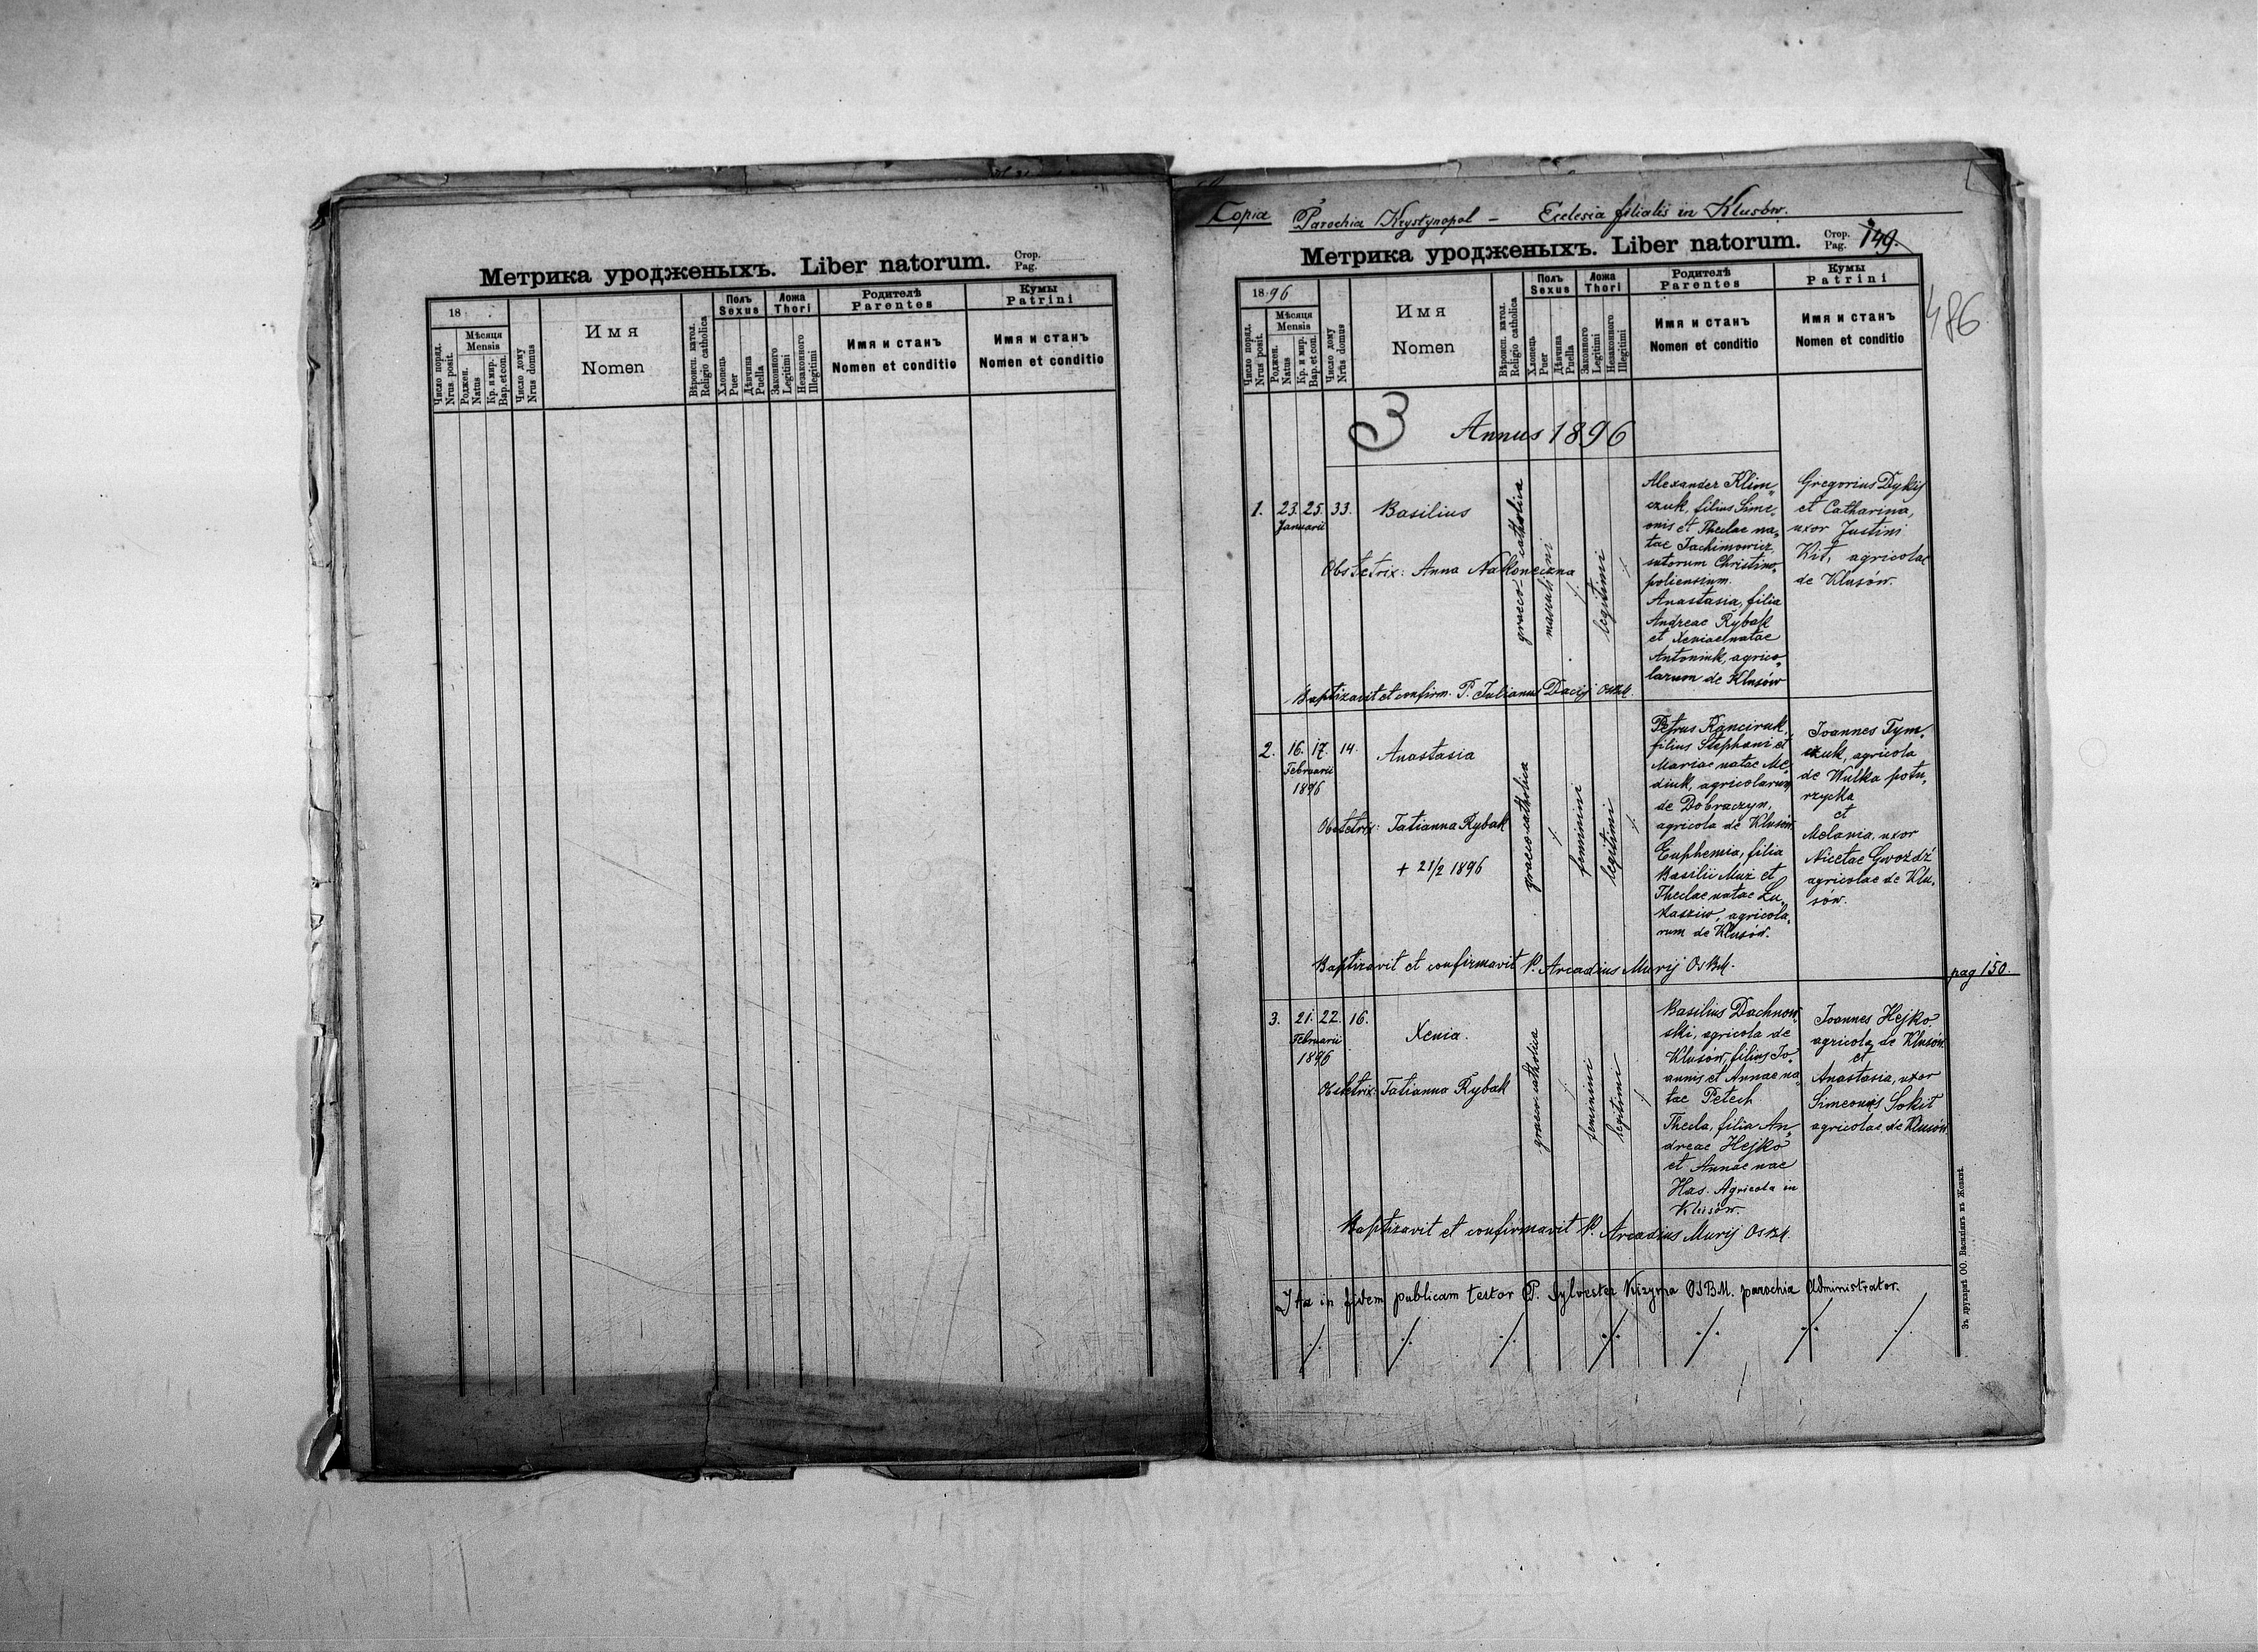 Метрика уродженыхъ. Liber natorum. Стор. Pag.
18
Число поряд. Nrus posit.
Мѣсяця Mensis
Роджен. Natus
Кр. и мир. Bap. et con.
Число дому Nrus domus
Имя
Nomen
Вѣроисп. катол. Religio catholica
Полъ Sexus
Хлопець Puer
Дѣвчина Puella
Ложа Thori
Законного Legitimi
Незаконного Illegitimi
Родителѣ
Parentes
Имя и станъ
Nomen et conditio
Кумы
Patrini
Имя и станъ
Nomen et conditio
Copia Parochia Krystynopol – Ecclesia filialis in Klusów.
Метрика уродженыхъ. Liber natorum. Стор. Pag. 149.
486
1896
Число поряд. Nrus posit.
Мѣсяця Mensis
Роджен. Natus
Кр. и мир. Bap. et con.
Число дому Nrus domus
Имя
Nomen
Вѣроисп. катол. Religio catholica
Полъ Sexus
Хлопець Puer
Дѣвчина Puella
Ложа Thori
Законного Legitimi
Незаконного Illegitimi
Родителѣ
Parentes
Имя и станъ
Nomen et conditio
Кумы
Patrini
Имя и станъ
Nomen et conditio
3 Annus 1896
1. 23. 25. 33. Basilius
Januarii
Obstetrix: Anna Nakoneczna
graeco-catholica
masculini
legitimi
Alexander Klim„
czuk, filius Sime„
onis et Theclae na„
tae Jachimowicz,
sutorum Christino„
poliensium.
Anastasia, filia
Andreae Rybak
et Xeniae natae
Antoniuk, agrico„
larum de Klusów
Gregorius Dykij
et Catharina,
uxor Justini
Kit, agricolae
de Klusów.
Baptizavit et confirm. P. Julianus Dacij OSBM.
2. 16. 17. 14. Anastasia
Februarii
1896
Obstetrix: Tatianna Rybak
+ 21/2 1896
graeco catholica
feminini
legitimi
Petrus Kanciruk,
filius Stephani et
Mariae natae Me„
diuk, agricolarum
de Dobraczyn,
agricola de Klusów
Euphemia, filia
Basilii Muż et
Theclae natae Lu„
kasziw, agricola„
rum de Klusów.
Joannes Tym„
czuk, agricola
de Wulka potu„
rzycka
et
Melania, uxor
Nicetae Gwoźdź
agricolae de Klu„
sów.
Baptizavit et confirmavit P. Arcadius Murij OSBM.
pag 150.
3. 21. 22. 16. Xenia.
Februarii
1896
Obstetrix: Tatianna Rybak
graeco catholica
feminini
legitimi
Basilius Dachnow„
ski, agricola de
Klusów, filius Jo„
annis et Annae na„
tae Petech
Thecla, filia An„
dreae Hejko
et Annae nae
Has. Agricola in
Klusów.
Joannes Hejko
agricola de Klusów
et
Anastasia, uxor
Simeonis Sokit
agricolae de Klusów
Baptizavit et confirmavit P. Arcadius Murij OSBM.
Ita in fidem publicam testor P. Sylvester Kizyma OSBM. parochia Administrator.
Зъ друкарнѣ ОО. Василіянъ въ Жовквѣ.